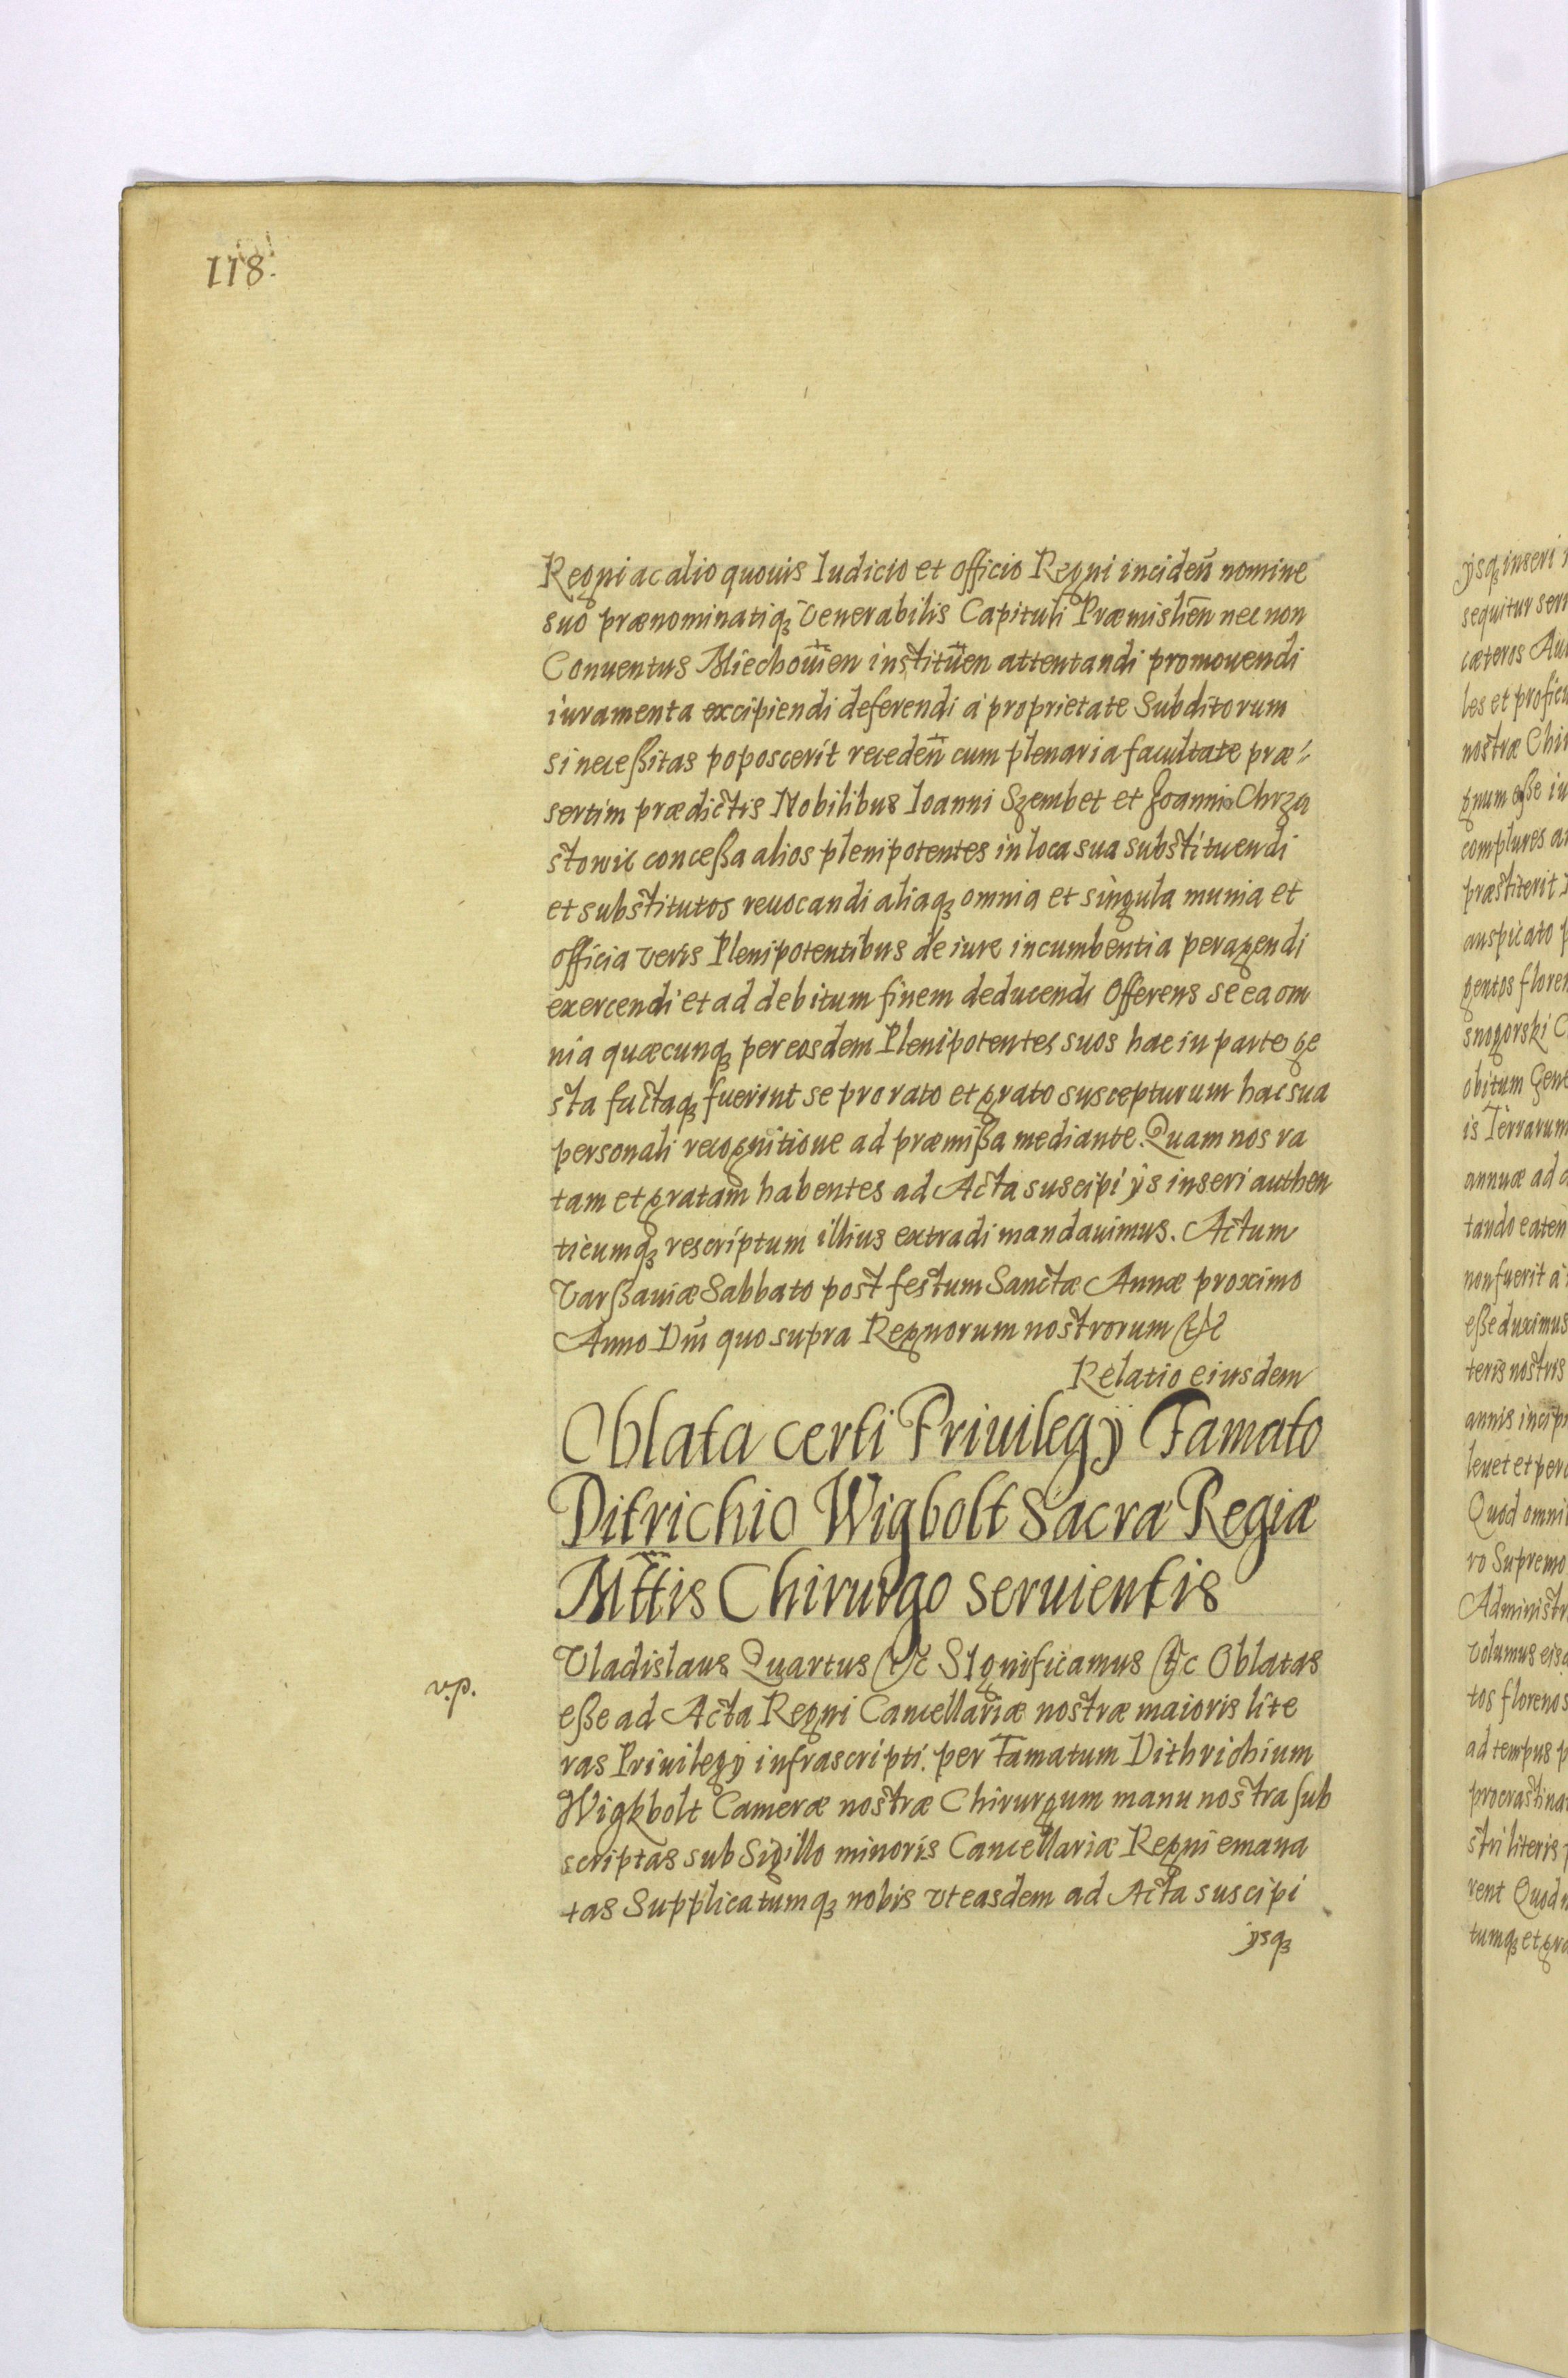 118.
Regni ac alio quouis Iudicio et officio Regni inciden̄ nomine
suo prænominatiq́ꝫ Venerabilis Capituli Præmislien̄ nec non
Conuentus Miechouien̄ instituen̄ attentandi promouendi
iuramenta excipiendi deferendi à proprietate Subditorum
si neceßitas poposcerit receden̄ cum plenaria facultate præ-
sertim prædictis Nobilibus Ioanni Szembet et Joanni Chrza
stowic conceßa alios plenipotentes in loca sua substituendi
et substitutos reuocandi aliaqꝫ omnia et singula munia et
officia veris Plenipotentibus de iure incumbentia peragendi
exercendi et ad debitum finem deducendi Offerens se ea om
nia quæcunqꝫ per eosdem Plenipotentes suos hac in parte ge
sta factaqꝫ fuerint se pro rato et grato suscepturum hac sua
personali recognitione ad præmißa mediante. Quam nos ra
tam et gratam habentes ad Acta suscipi ÿs inseri authen
ticumqꝫ rescriptum illius extradi mandauimus. Actum
Varßauiæ Sabbato post festum Sanctæ Annæ proximo
Anno Dn̄i quo supra Regnorum nostrorum &c
Relatio eiusdem
Oblata certi Priuilegÿ Famato
Ditrichio Wigbolt Sacræ Regiæ
Mttis Chirurgo seruientis
v.p.
Vladislaus Quartus &c Significamus &c Oblatas
eße ad Acta Regni Cancellariæ nostræ maioris lite
ras Priuilegÿ infrascripti. per Famatum Dithrichium
Wigkbolt Cameræ nostræ Chirurgum manu nostra sub
scriptas sub Sigillo minoris Cancellariæ Regni emana
tas Supplicatumqꝫ nobis vt easdem ad Acta suscipi
ÿsqꝫ
ÿsqꝫ inseri
sequitur
cæteros
les et
nostræ
gnum eße
complures
præstiterit
auspicato
gentos
snogorski
obitum
is Terrarum
annuæ ad
tando eaten
non fuerit à
eße duximus
teris nostris
annis
leuet et
Quod
ro Supremo
Administr
Volumus
tos florenos
ad tempus
procrastina
stri literis
rent Quod
tumqꝫ et